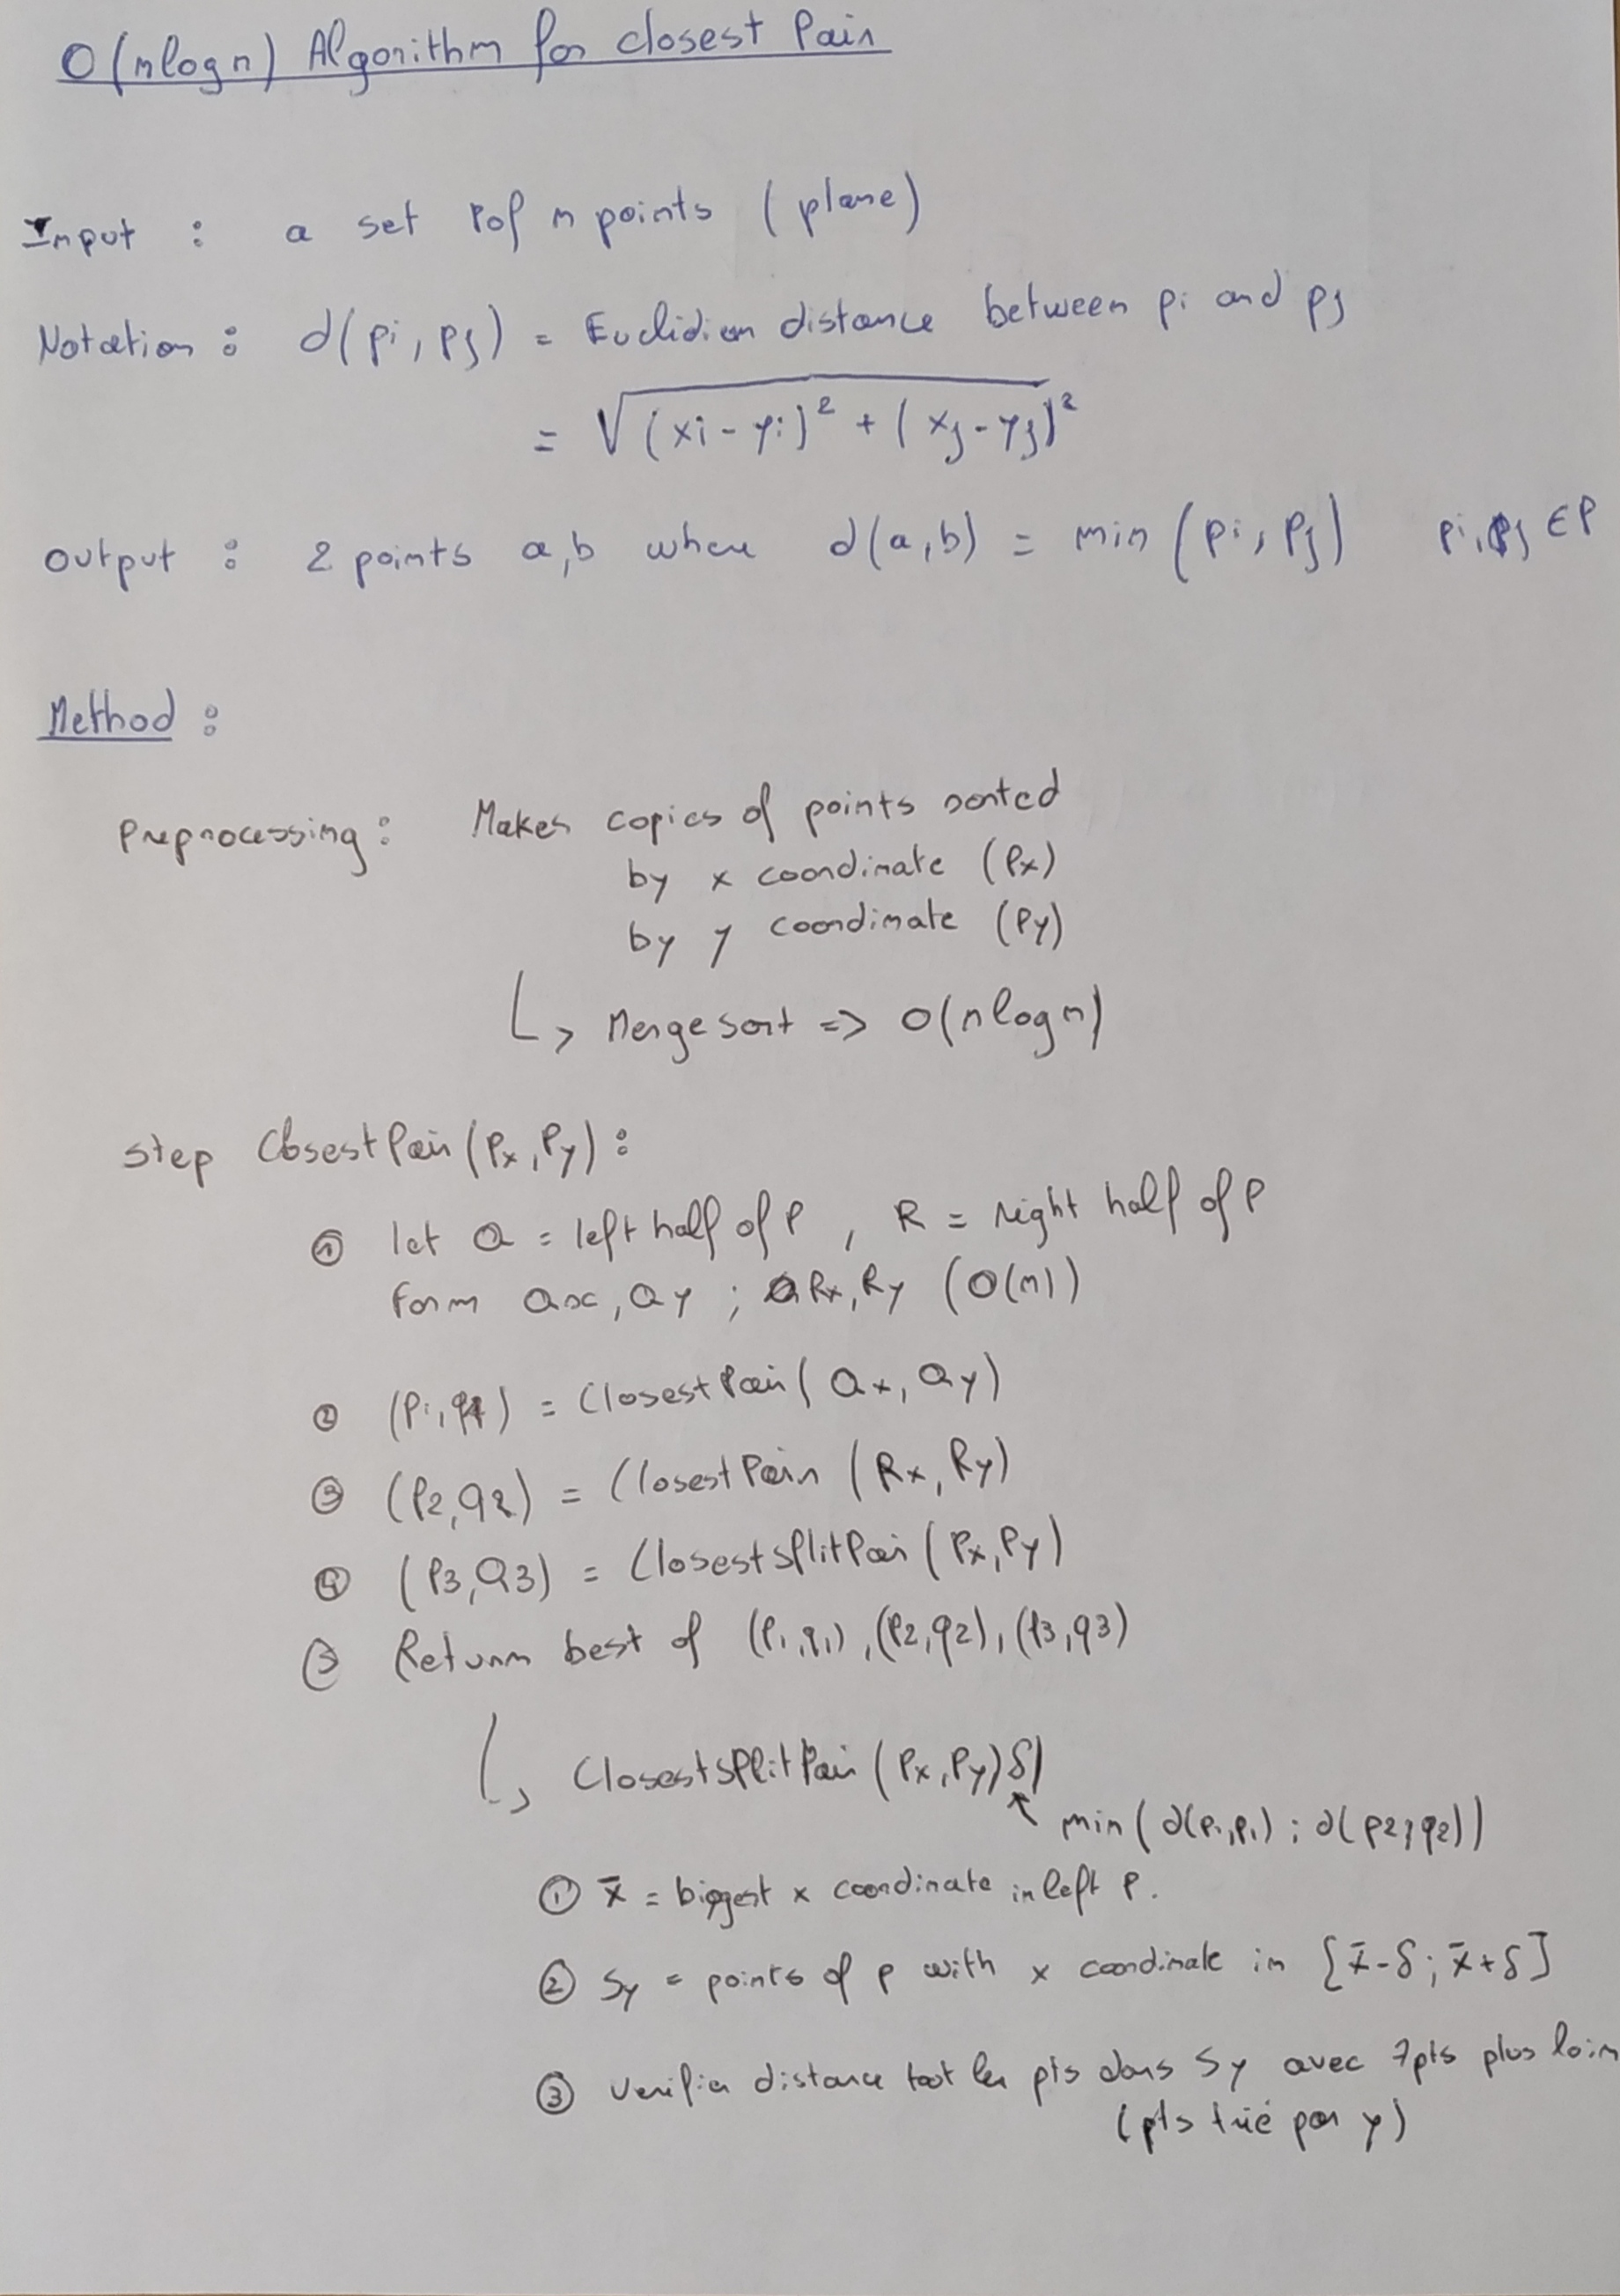 O(nlogn) Algorithm for closest Pair
Input : a set P of n points (plane)
Notation : d(pi, pj) = Euclidian distance between pi and pj
= √(xi - yi)² + (xj - yj)²
Output : 2 points a,b where d(a,b) = min (pi, pj) pi, pj ∈ P
Method :
Preprocessing : Makes copies of points sorted
by x coordinate (Px)
by y coordinate (Py)
↳ Merge sort => O(nlogn)
step ClosestPair (Px, Py) :
① let Q = left half of P , R = right half of P
form Qx, Qy ; Rx, Ry (O(n))
② (P1, q1) = ClosestPair( Qx, Qy)
③ (P2, q2) = ClosestPair (Rx, Ry)
④ (P3, Q3) = ClosestSplitPair (Px, Py)
⑤ Return best of (P1, q1), (P2, q2), (P3, q3)
↳ ClosestSplitPair (Px, Py) δ)
↖ min( d(p1, p1) ; d(p2, q2))
① x̄ = biggest x coordinate in left P.
② Sy = points of P with x coordinate in [x̄-δ ; x̄+δ]
③ Verifier distance tout les pts dans Sy avec 7pts plus loin
(pts trié par y)